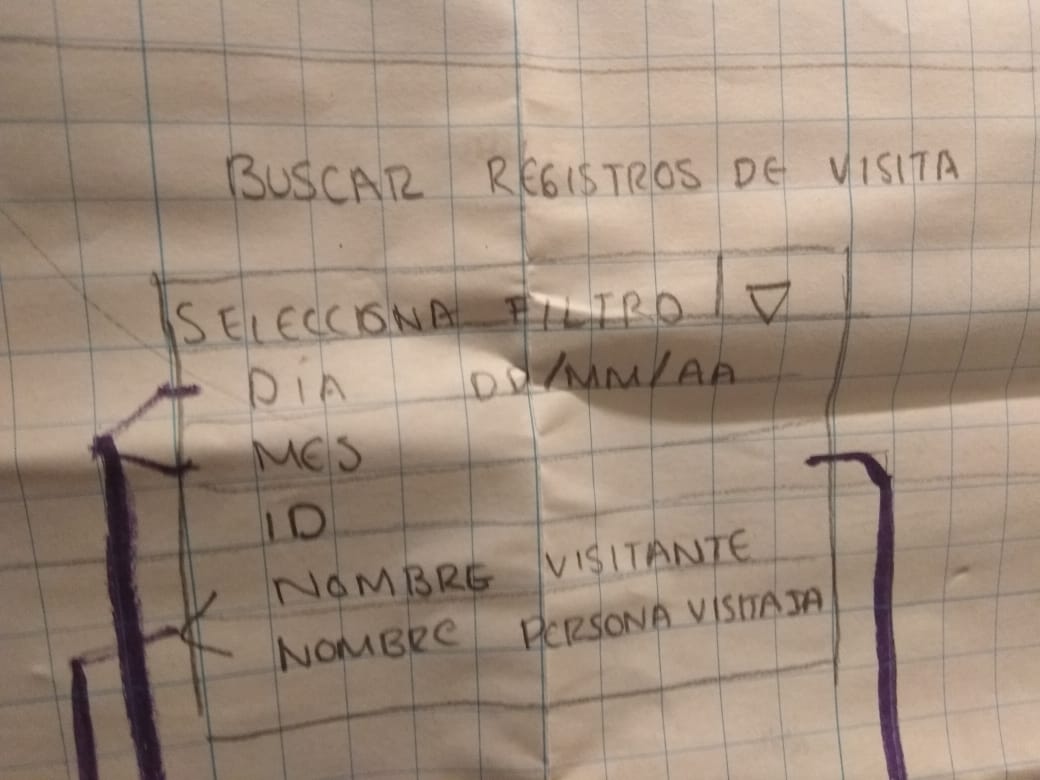 BUSCAR REGISTROS DE VISITA
SELECCIONA FILTRO
DIA DD/MM/AA
MES
ID
NOMBRE VISITANTE
NOMBRE PERSONA VISITADA